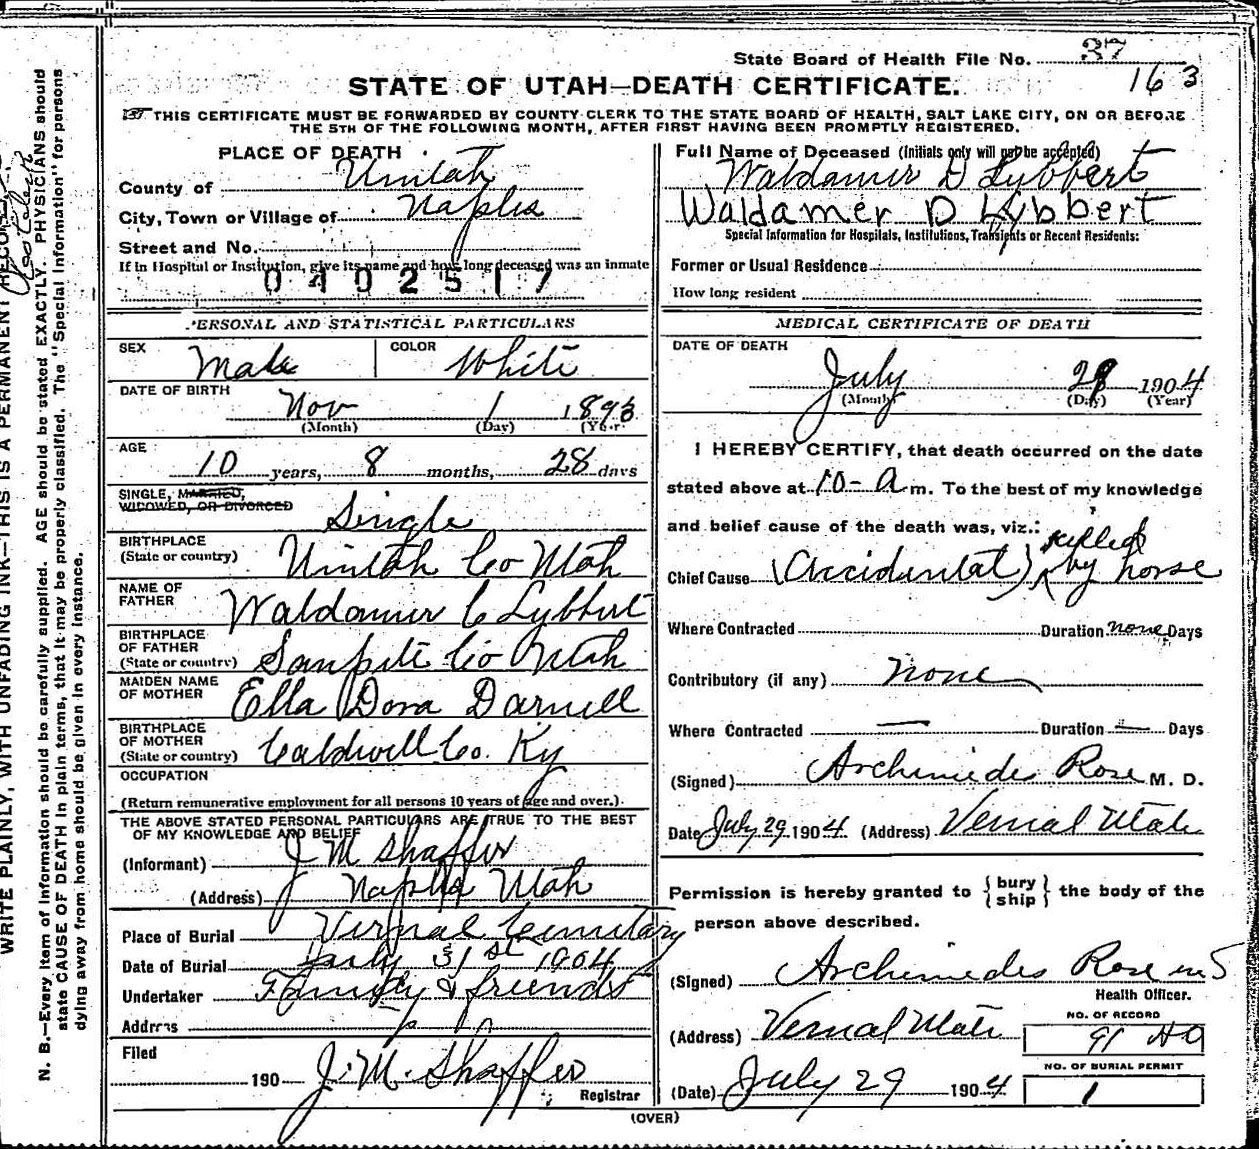 State Board of Health File No. 37
163
STATE OF UTAH—DEATH CERTIFICATE.
THIS CERTIFICATE MUST BE FORWARDED BY COUNTY CLERK TO THE STATE BOARD OF HEALTH, SALT LAKE CITY, ON OR BEFORE
THE 5TH OF THE FOLLOWING MONTH, AFTER FIRST HAVING BEEN PROMPTLY REGISTERED.
PLACE OF DEATH
County of Uintah
City, Town or Village of Naples
Street and No.
If in Hospital or Institution, give its name and how long deceased was an inmate
0402517
PERSONAL AND STATISTICAL PARTICULARS
SEX Male COLOR White
DATE OF BIRTH
Nov 1 1893
(Month) (Day) (Year)
AGE
10 years, 8 months, 28 days
SINGLE, MARRIED,
WIDOWED, OR DIVORCED Single
BIRTHPLACE
(State or country) Uintah Co Utah
NAME OF
FATHER Waldamer C Lybbert
BIRTHPLACE
OF FATHER
(State or country) Sanpete Co Utah
MAIDEN NAME
OF MOTHER Ella Dora Darnell
BIRTHPLACE
OF MOTHER
(State or country) Caldwell Co. Ky
OCCUPATION
(Return remunerative employment for all persons 10 years of age and over.)
THE ABOVE STATED PERSONAL PARTICULARS ARE TRUE TO THE BEST
OF MY KNOWLEDGE AND BELIEF
(Informant) J M Shaffer
(Address) Naples Utah
Place of Burial Vernal Cemetary
Date of Burial July 31st 1904
Undertaker Family & friends
Address
Filed
190 J. M. Shaffer
Registrar
(OVER)
Full Name of Deceased (Initials only will not be accepted)
Waldamer D Lybbert
Waldamer D Lybbert
Special Information for Hospitals, Institutions, Transients or Recent Residents:
Former or Usual Residence
How long resident
MEDICAL CERTIFICATE OF DEATH
DATE OF DEATH
July 28 1904
(Month) (Day) (Year)
I HEREBY CERTIFY, that death occurred on the date
stated above at 10- A m. To the best of my knowledge
and belief cause of the death was, viz.:
Chief Cause (Accidental) killed by horse
Where Contracted Duration none Days
Contributory (if any) none
Where Contracted — Duration — Days
(Signed) Archimedes Rose M. D.
Date July 29 1904 (Address) Vernal Utah
Permission is hereby granted to { bury ship } the body of the
person above described.
(Signed) Archimedes Rose
Health Officer.
(Address) Vernal Utah
NO. OF RECORD
91
NO. OF BURIAL PERMIT
1
(Date) July 29 1904
WRITE PLAINLY, WITH UNFADING INK—THIS IS A PERMANENT RECORD
N. B.—Every item of information should be carefully supplied. AGE should be stated EXACTLY. PHYSICIANS should
state CAUSE OF DEATH in plain terms, that it may be properly classified. The "Special Information" for persons
dying away from home should be given in every instance.